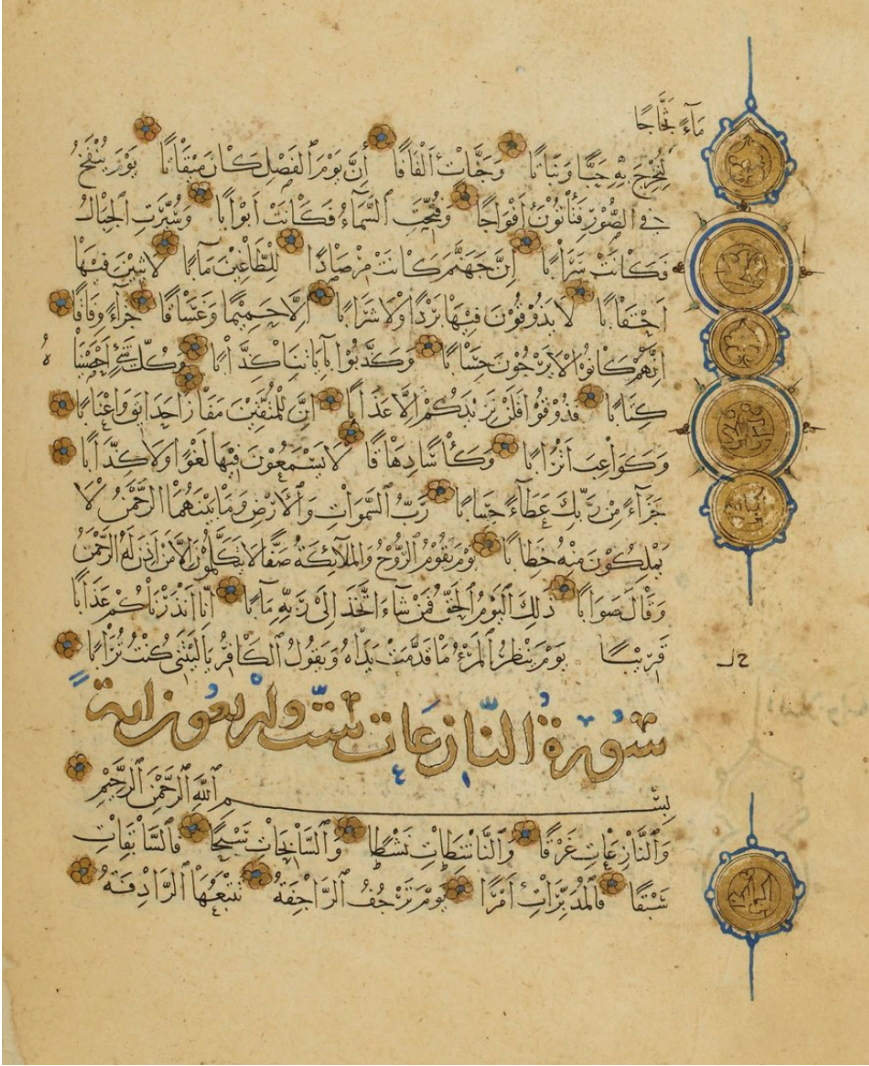 مَآءً ثَجَّاجًا
لِنُخْرِجَ بِهِ حَبًّا وَنَبَاتًا وَجَنَّاتٍ أَلْفَافًا إِنَّ يَوْمَ ٱلْفَصْلِ كَانَ مِيقَاتًا يَوْمَ يُنْفَخُ
فِي ٱلصُّورِ فَتَأْتُونَ أَفْوَاجًا وَفُتِحَتِ ٱلسَّمَآءُ فَكَانَتْ أَبْوَابًا وَسُيِّرَتِ ٱلْجِبَالُ
فَكَانَتْ سَرَابًا إِنَّ جَهَنَّمَ كَانَتْ مِرْصَادًا لِلطَّاغِينَ مَآبًا لَابِثِينَ فِيهَا
أَحْقَابًا لَا يَذُوقُونَ فِيهَا بَرْدًا وَلَا شَرَابًا إِلَّا حَمِيمًا وَغَسَاقًا جَزَآءً وِفَاقًا
إِنَّهُمْ كَانُوا لَا يَرْجُونَ حِسَابًا وَكَذَّبُوا بِآيَاتِنَا كِذَّابًا وَكُلَّ شَيْءٍ أَحْصَيْنَا هُ
كِتَابًا فَذُوقُوا فَلَنْ نَزِيدَكُمْ إِلَّا عَذَابًا إِنَّ لِلْمُتَّقِينَ مَفَازًا حَدَآئِقَ وَأَعْنَابًا
وَكَوَاعِبَ أَتْرَابًا وَكَأْسًا دِهَاقًا لَا يَسْمَعُونَ فِيهَا لَغْوًا وَلَا كِذَّابًا
جَزَآءً مِنْ رَبِّكَ عَطَآءً حِسَابًا رَبِّ ٱلسَّمٰوَاتِ وَٱلْأَرْضِ وَمَا بَيْنَهُمَا ٱلرَّحْمٰنُ لَا
يَمْلِكُونَ مِنْهُ خِطَابًا يَوْمَ يَقُومُ ٱلرُّوحُ وَٱلْمَلَآئِكَةُ صَفًّا لَا يَتَكَلَّمُونَ إِلَّا مَنْ أَذِنَ لَهُ ٱلرَّحْمٰنُ
وَقَالَ صَوَابًا ذٰلِكَ ٱلْيَوْمُ ٱلْحَقُّ فَمَنْ شَآءَ اتَّخَذَ إِلَى رَبِّهِ مَآبًا إِنَّا أَنْذَرْنَاكُمْ عَذَابًا
قَرِيبًا يَوْمَ يَنْظُرُ ٱلْمَرْءُ مَا قَدَّمَتْ يَدَاهُ وَيَقُولُ ٱلْكَافِرُ يَا لَيْتَنِي كُنْتُ تُرَابًا
سُورَةُ النَّازِعَاتِ سِتٌّ وَأَرْبَعُونَ آيَةً
بِسْمِ ٱللَّهِ ٱلرَّحْمٰنِ ٱلرَّحِيمِ
وَٱلنَّازِعَاتِ غَرْقًا وَٱلنَّاشِطَاتِ نَشْطًا وَٱلسَّابِحَاتِ سَبْحًا فَٱلسَّابِقَاتِ
سَبْقًا فَٱلْمُدَبِّرَاتِ أَمْرًا يَوْمَ تَرْجُفُ ٱلرَّاجِفَةُ تَتْبَعُهَا ٱلرَّادِفَةُ